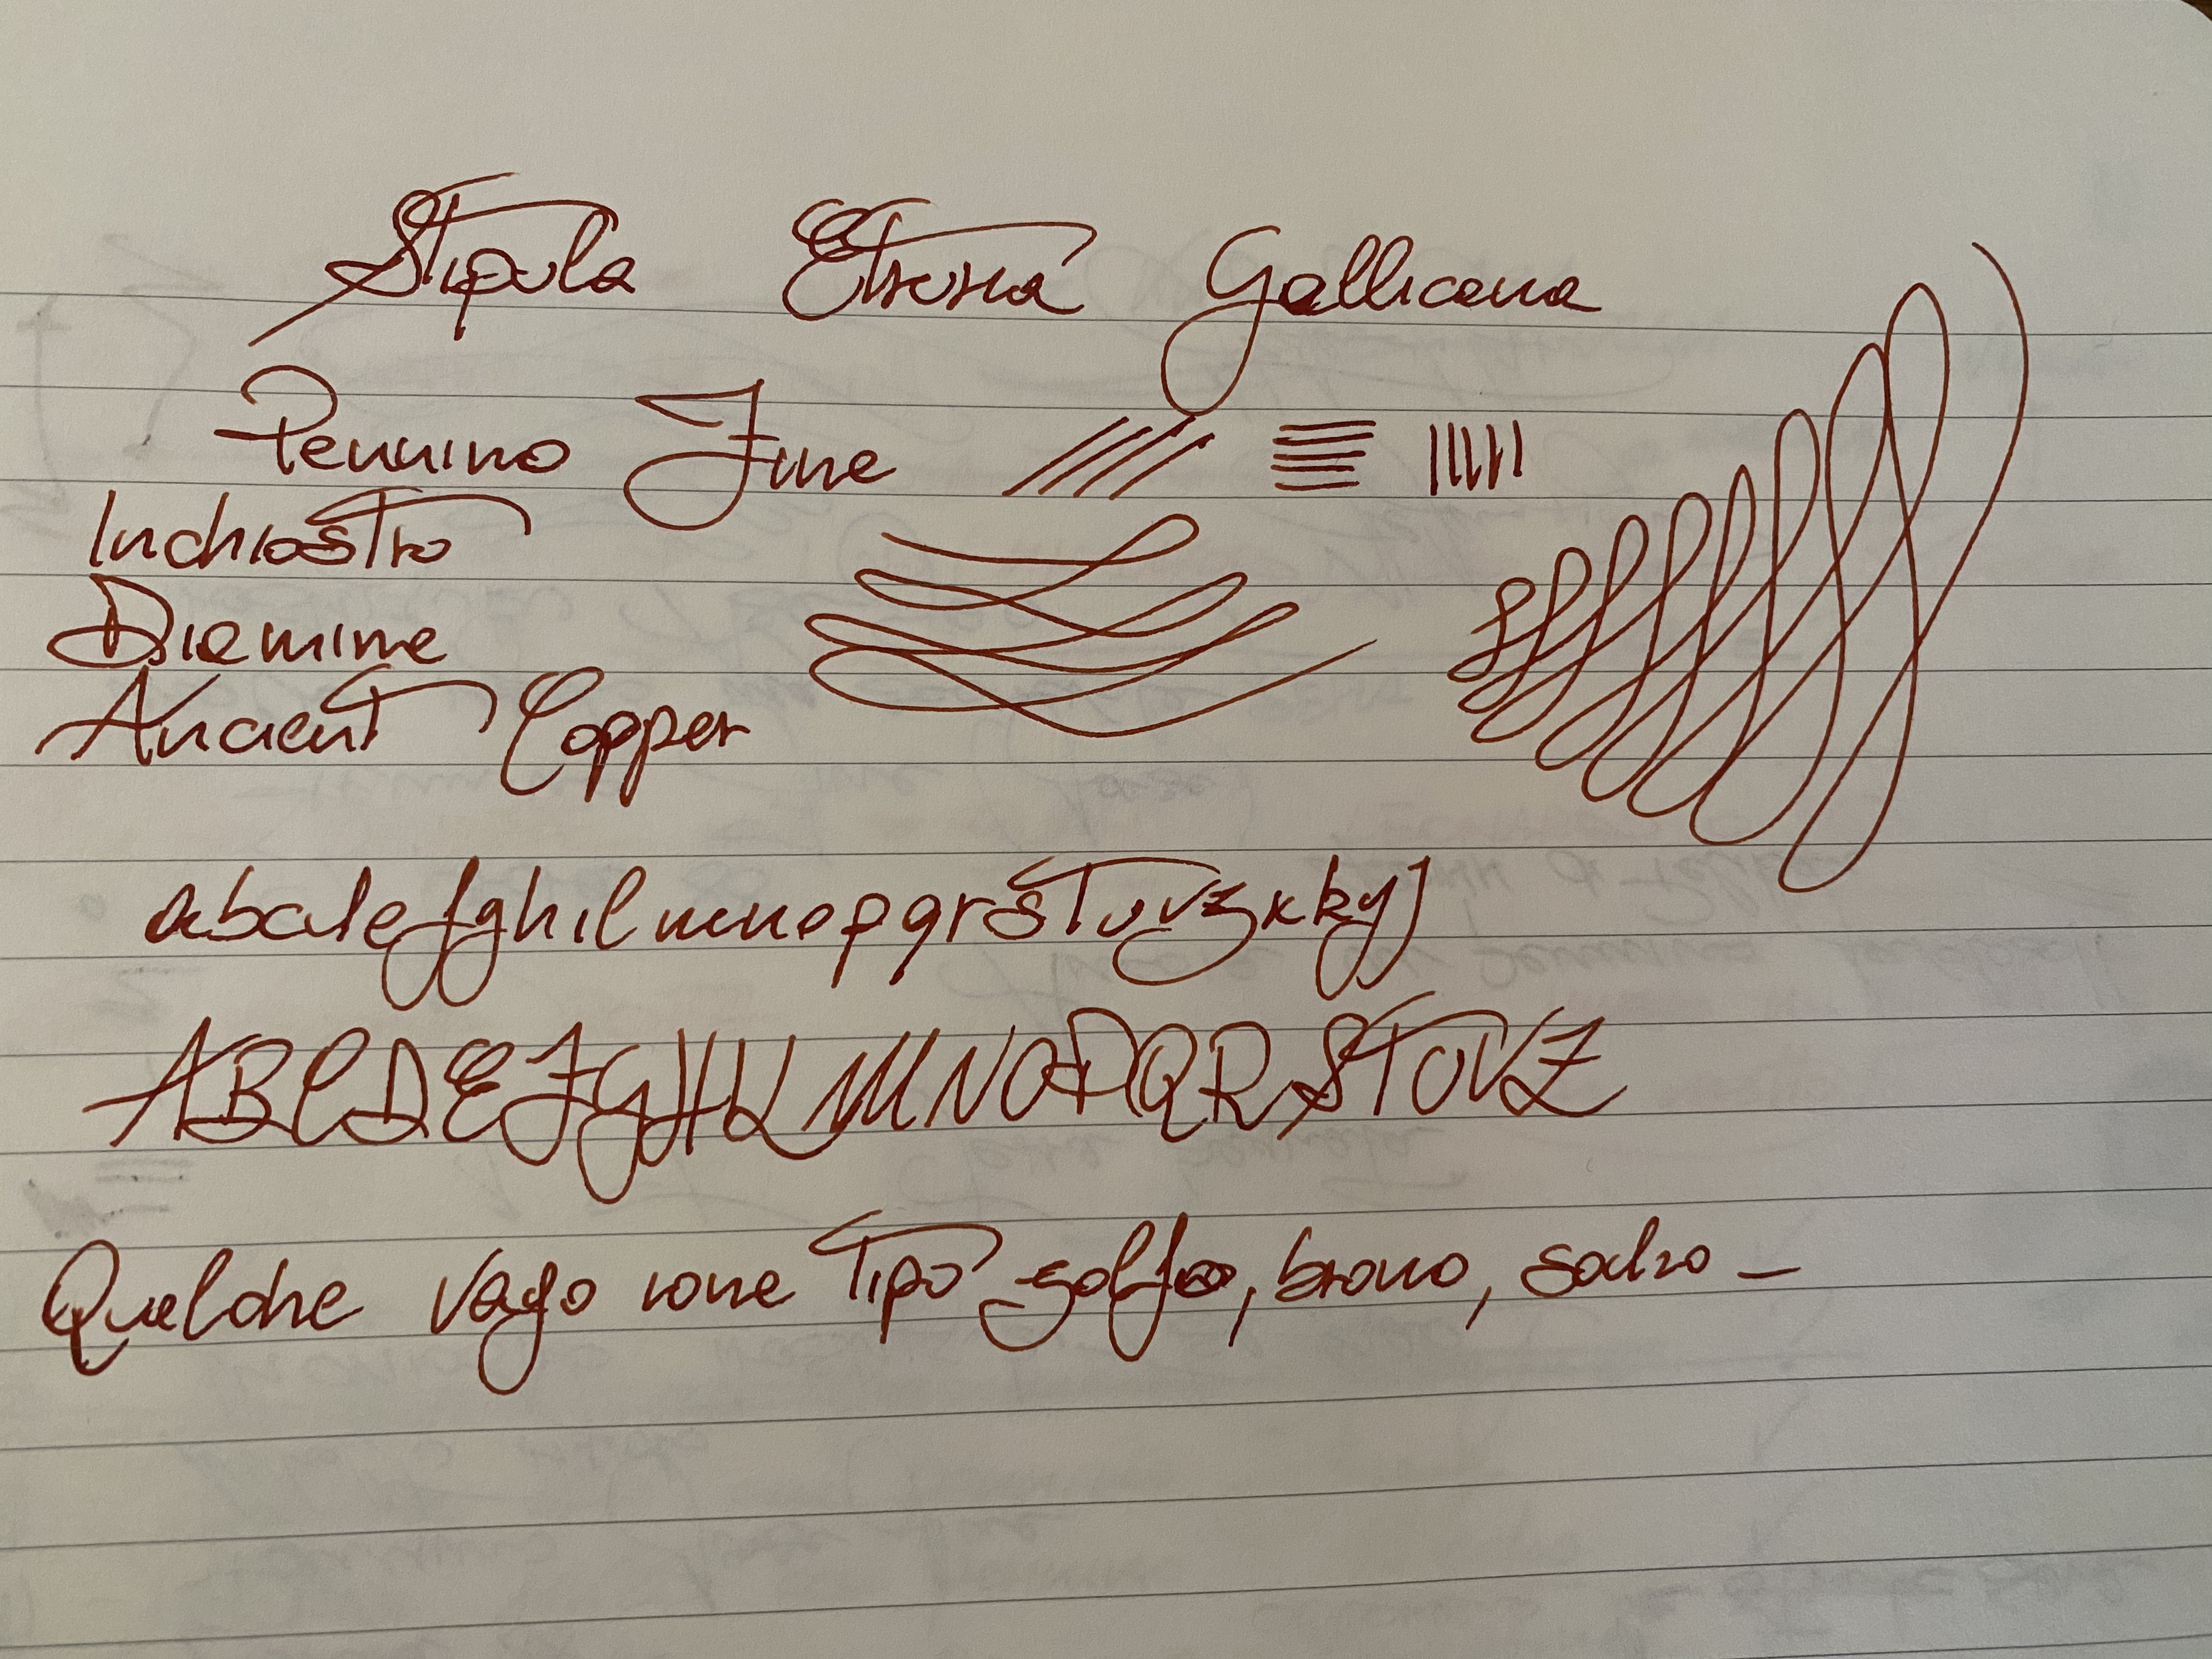 Stipula Etruria Gallicana
Pennino Fine
Inchiostro
Diamine
Ancient Copper
abcdefghilmnopqrstuvzxkyj
ABCDEFGHILMNOPQRSTUVZ
Qualche vago rone tipo golfo, bravo, salvo